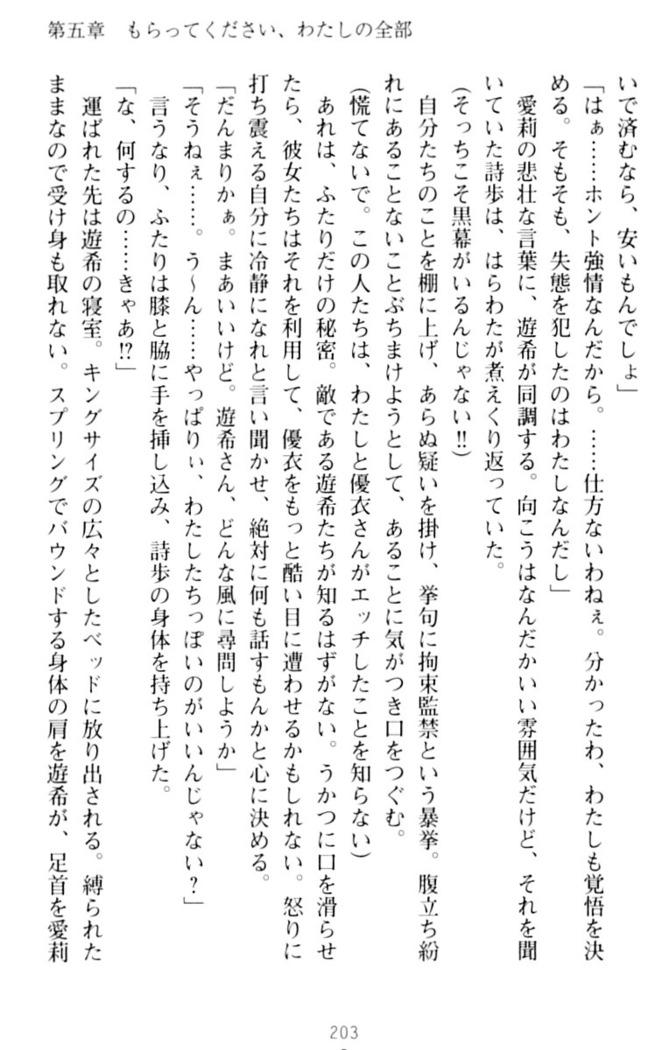 第五章　もらってください、わたしの全部
いで済むなら、安いもんでしょ」
「はぁ……ホント強情なんだから。……仕方ないわねぇ。分かったわ、わたしも覚悟を決
める。そもそも、失態を犯したのはわたしなんだし」
　愛莉の悲壮な言葉に、遊希が同調する。向こうはなんだかいい雰囲気だけど、それを聞
いていた詩歩は、はらわたが煮えくり返っていた。
（そっちこそ黒幕がいるんじゃない!!）
　自分たちのことを棚に上げ、あらぬ疑いを掛け、挙句に拘束監禁という暴挙。腹立ち紛
れにあることないことぶちまけようとして、あることに気がつき口をつぐむ。
（慌てないで。この人たちは、わたしと優衣さんがエッチしたことを知らない）
　あれは、ふたりだけの秘密。敵である遊希たちが知るはずがない。うかつに口を滑らせ
たら、彼女たちはそれを利用して、優衣をもっと酷い目に遭わせるかもしれない。怒りに
打ち震える自分に冷静になれと言い聞かせ、絶対に何も話すもんかと心に決める。
「だんまりかぁ。まあいいけど。遊希さん、どんな風に尋問しようか」
「そうねぇ……。う～ん……やっぱりぃ、わたしたちっぽいのがいいんじゃない？」
　言うなり、ふたりは膝と脇に手を挿し込み、詩歩の身体を持ち上げた。
「な、何するの……きゃあ!?」
　運ばれた先は遊希の寝室。キングサイズの広々としたベッドに放り出される。縛られた
ままなので受け身も取れない。スプリングでバウンドする身体の肩を遊希が、足首を愛莉
203